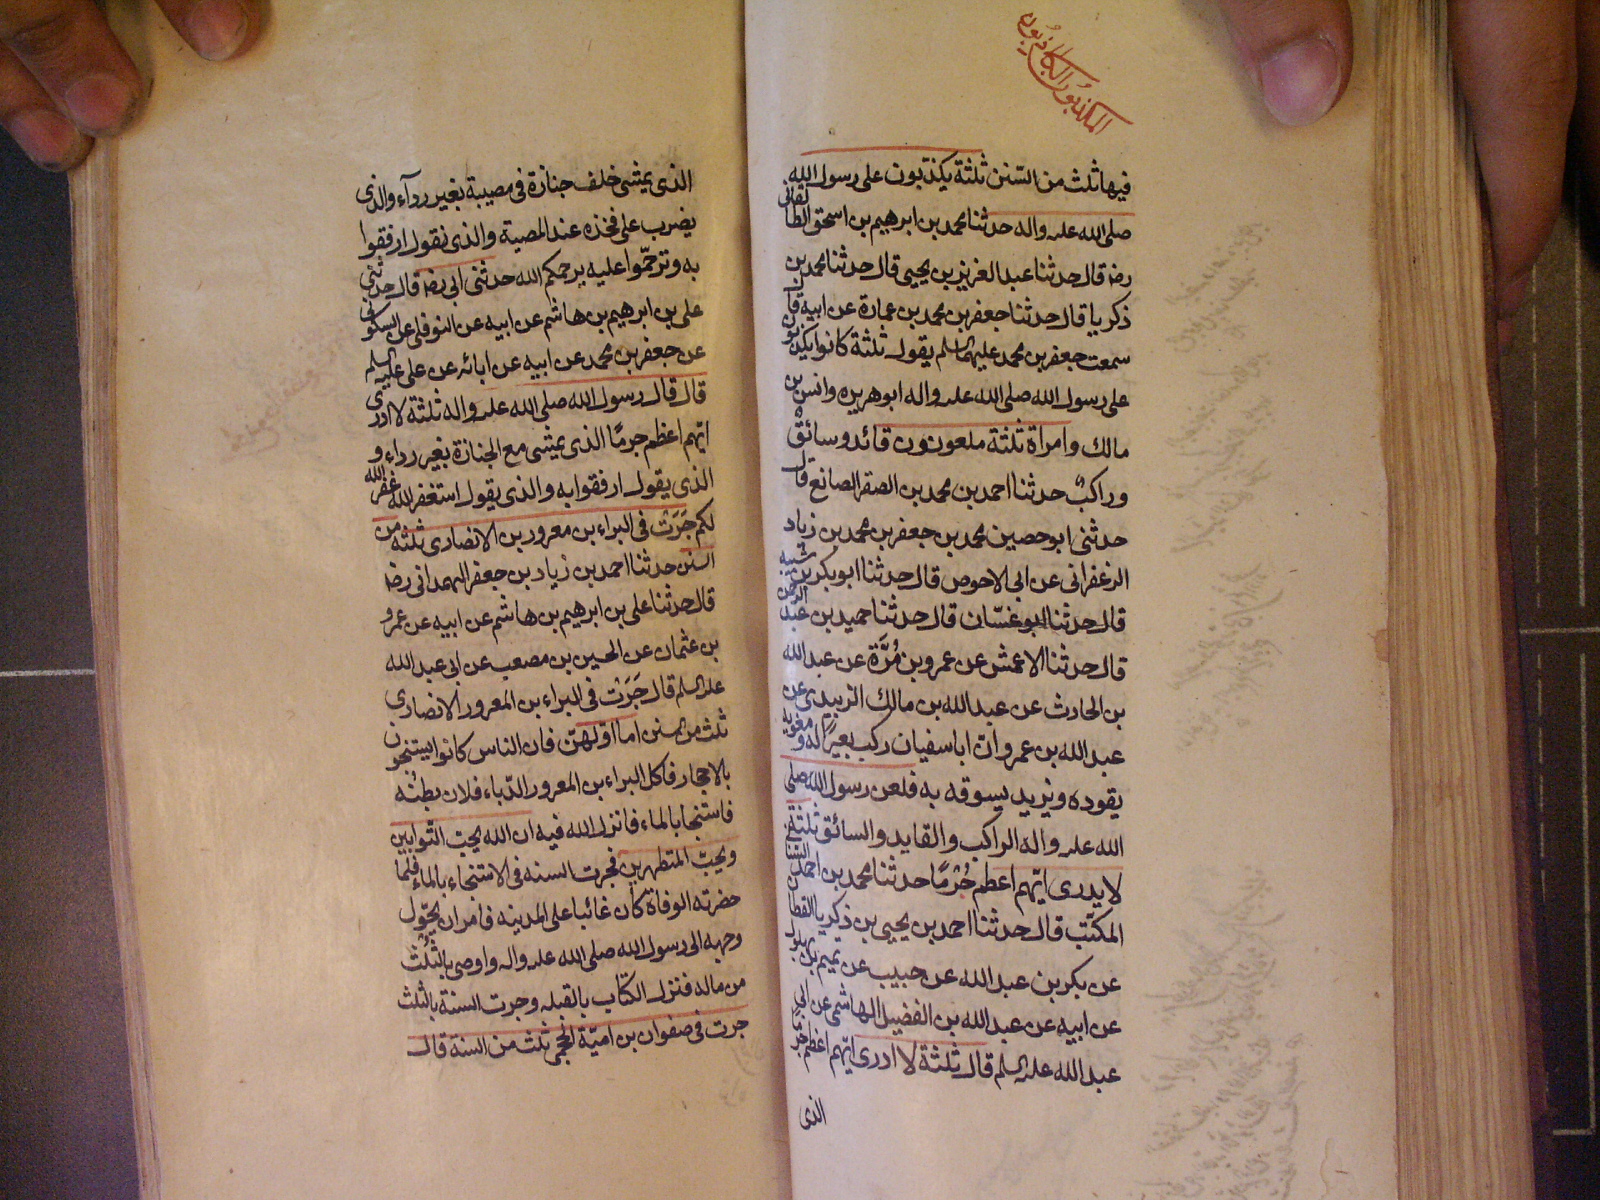 المكذبون الكاذبون
فيها ثلث من السنن ثلثة يكذبون على رسول الله
صلى الله عليه واله حدثنا محمد بن ابرهيم بن اسحق الطالقانى
رضه قال حدثنا عبد العزيز بن يحيى قال حدثنا محمد بن
زكريا قال حدثنا جعفر بن محمد بن عمارة عن ابيه قال
سمعت جعفر بن محمد عليهما السلم يقول ثلثة كانوا يكذبون
على رسول الله صلى الله عليه واله ابو هريره وانس بن
مالك وامراة ثلثة ملعونون قائد وسائق
وراكب حدثنا احمد بن محمد بن الصقر الصانع قال
حدثنى ابو حصين محمد بن جعفر بن محمد بن زياد
الزعفرانى عن ابى الاحوص قال حدثنا ابو بكر بن شيبه
قال حدثنا ابو غسّان قال حدثنا حميد بن عبد الرحمن
قال حدثنا الاعمش عن عمرو بن مُرَّة عن عبد الله
بن الحارث عن عبد الله بن مالك الزبيدى عن
عبد الله بن عمر وان ابا سفيان ركب بعيرًا له ومعويه
يقوده ويزيد يسوقه به فلعن رسول الله صلى
الله عليه واله الراكب والقايد والسائق ثلثة
لا يدرى ايّهم اعظم جُرْمًا حدثنا محمد بن احمد السنانى
المكتّب قال حدثنا احمد بن يحيى بن زكريا القطان
عن بكر بن عبد الله عن حبيب عن تميم بن بهلول
عن ابيه عن عبد الله بن الفضيل الهاشمى عن ابى
عبد الله عليه السلم قال ثلثة لا ادرى ايّهم اعظم جرمًا
الذى
الذى يمشى خلف جنازة فى مصيبة بغير رداء والذى
يضرب على فخذه عند المصيبة والذى يقول ارفقوا
به وترحّموا عليه يرحمكم الله حدثنى ابى رضه قال حدثنى
على بن ابرهيم بن هاشم عن ابيه عن النوفلى عن السكونى
عن جعفر بن محمد عن ابيه عن ابائه عن على عليه السلم
قال قال رسول الله صلى الله عليه واله ثلثة لا ادرى
ايّهم اعظم جرمًا الذى يمشى مع الجنازة بغير رداء و
الذى يقول ارفقوا به والذى يقول استغفر الله غفر الله
لكم جَرَت فى البراء بن معرور بن الانصارى ثلثه من
السنن حدثنا احمد بن زياد بن جعفر الهمدانى رضه
قال حدثنا على بن ابرهيم بن هاشم عن ابيه عن عمرو
بن عثمان عن الحسين بن مصعب عن ابى عبد الله
عليه السلم قال جَرَت فى البراء بن المعرور الانصارى
ثلث من السنن اما اولهنّ فان الناس كانوا يستنجون
بالاحجار فاكل البراء بن المعرور الدّباء فلان بطنُه
فاستنجا بالماء فانزل الله فيه ان الله يحبّ التوابين
ويحبّ المتطهرين فجرت السنه فى الاستنجاء بالماء فلما
حضرته الوفاة كان غائبا على المدينه فامر ان يحوّل
وجهه الى رسول الله صلى الله عليه واله واوصى بالثُلُث
من ماله فنزل الكتاب بالقبله وجرت السنة بالثلث
جرت فى صفوان بن اميّة الجمحى ثلث من السنة قال